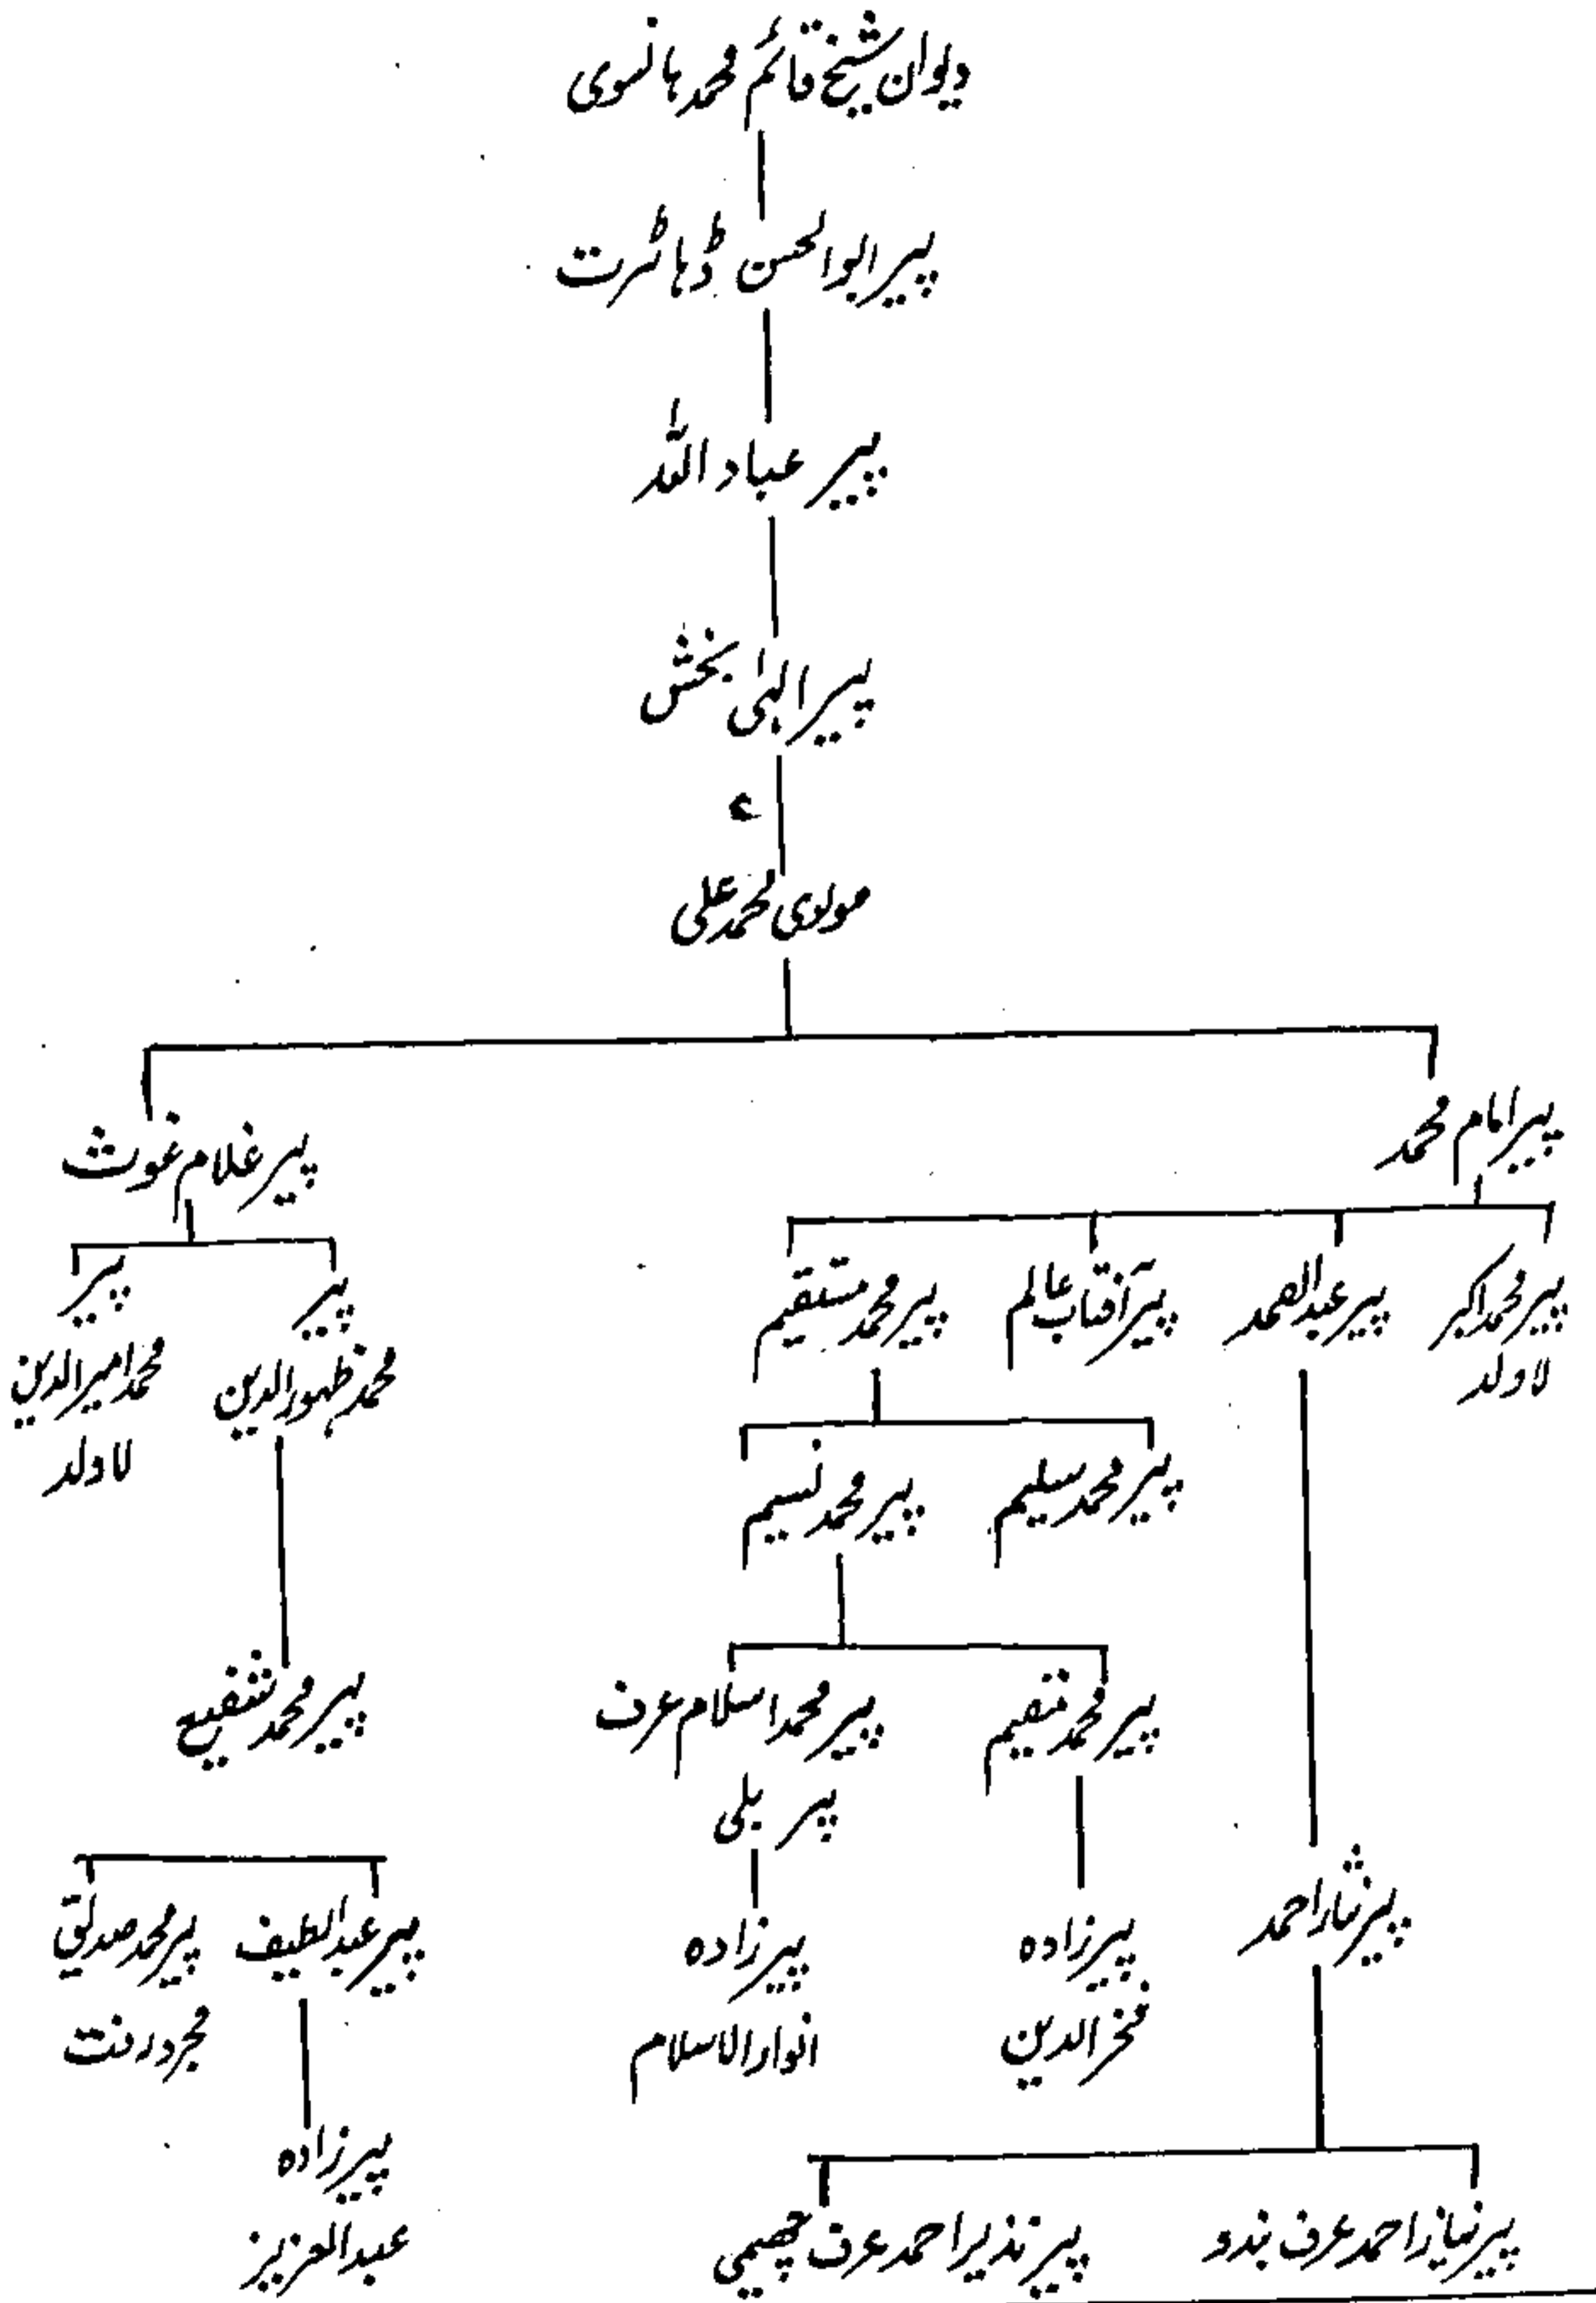 دیوان شیخ قائم محمد ہانسوی
پیر ابوالحسن ڈہاٹرت
پیر عباد اللہ
پیر الٰہی بخش
مولوی محمد علی
پیر امام محمد
پیر غلام غوث
پیر محمد اکبر
لاولد
پیر عبدالصمد
پیر آفتاب عالم
پیر محمد مستقیم
پیر
محمد ظہور الدین
پیر
محمد امیر الدین
لاولد
پیر محمد سلیم
پیر محمد نسیم
پیر محمد مقیم
پیر محمد اسلام عرف
پیر بلی
پیر محمد شفیع
پیر نثار احمد
پیرزادہ
فخر الدین
پیرزادہ
انوار الاسلام
پیر عبد اللطیف
پیر محمد صدیق
مجرد رفت
پیرزادہ
عبد العزیز
پیر نیاز احمد عرف بندو
پیر نذیر احمد عرف چھیمی